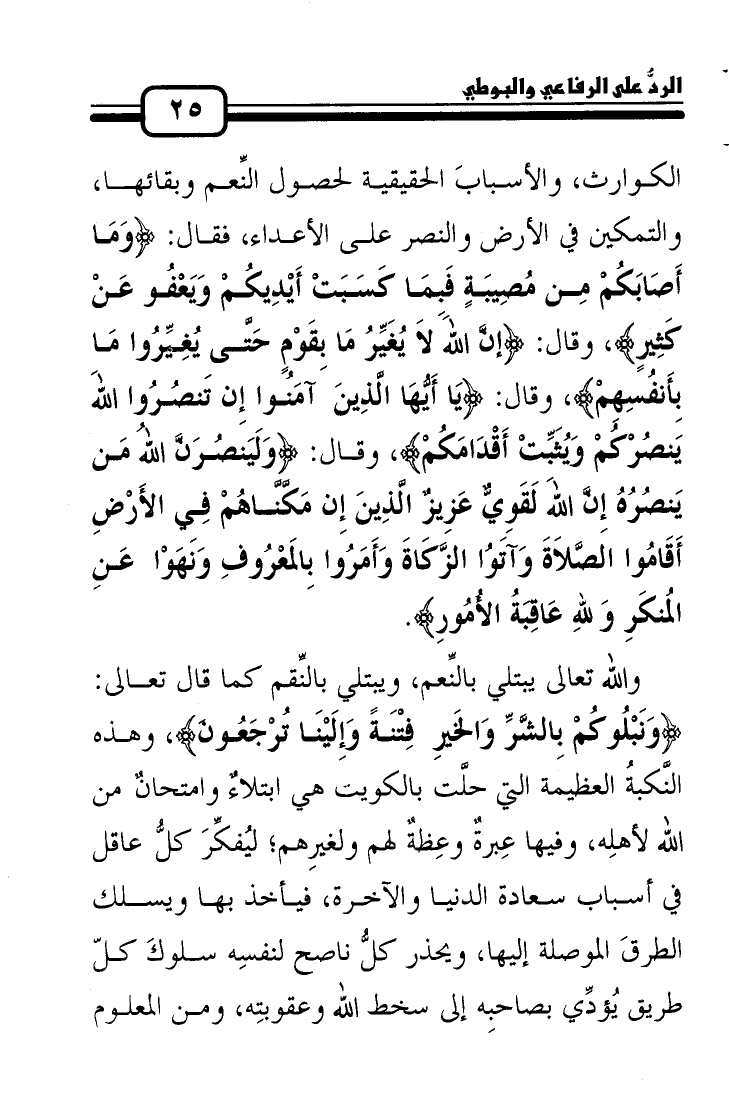 الردُّ على الرفاعي والبوطي
٢٥
الكوارث، والأسبابَ الحقيقية لحصول النِّعم وبقائها،
والتمكين في الأرض والنصر على الأعداء، فقال: ﴿وَمَا
أَصَابَكُمْ مِن مُصِيبَةٍ فَبِمَا كَسَبَتْ أَيْدِيكُمْ وَيَعْفُو عَنْ
كَثِيرٍ﴾، وقال: ﴿إِنَّ اللهَ لَا يُغَيِّرُ مَا بِقَوْمٍ حَتَّى يُغَيِّرُوا مَا
بِأَنفُسِهِمْ﴾، وقال: ﴿يَا أَيُّهَا الَّذِينَ آمَنُوا إِن تَنصُرُوا اللهَ
يَنصُرْكُمْ وَيُثَبِّتْ أَقْدَامَكُمْ﴾، وقال: ﴿وَلَيَنصُرَنَّ اللهُ مَن
يَنصُرُهُ إِنَّ اللهَ لَقَوِيٌّ عَزِيزٌ الَّذِينَ إِن مَكَّنَّاهُمْ فِي الأَرْضِ
أَقَامُوا الصَّلَاةَ وَآتَوُا الزَّكَاةَ وَأَمَرُوا بِالمَعْرُوفِ وَنَهَوْا عَنِ
المُنكَرِ وَ للهِ عَاقِبَةُ الأُمُورِ﴾.
والله تعالى يبتلي بالنِّعم، ويبتلي بالنِّقم كما قال تعالى:
﴿وَنَبْلُوكُمْ بِالشَّرِّ وَالخَيرِ فِتْنَةً وَإِلَيْنَا تُرْجَعُونَ﴾، وهذه
النَّكبةُ العظيمة التي حلَّت بالكويت هي ابتلاءٌ وامتحانٌ من
الله لأهلِه، وفيها عِبرةٌ وعِظةٌ لهم ولغيرهم؛ ليُفكِّرَ كلُّ عاقل
في أسباب سعادة الدنيا والآخرة، فيأخذ بها ويسلك
الطرقَ الموصلة إليها، ويحذر كلُّ ناصح لنفسِه سلوكَ كلّ
طريق يُؤدِّي بصاحبِه إلى سخط الله وعقوبتِه، ومن المعلوم